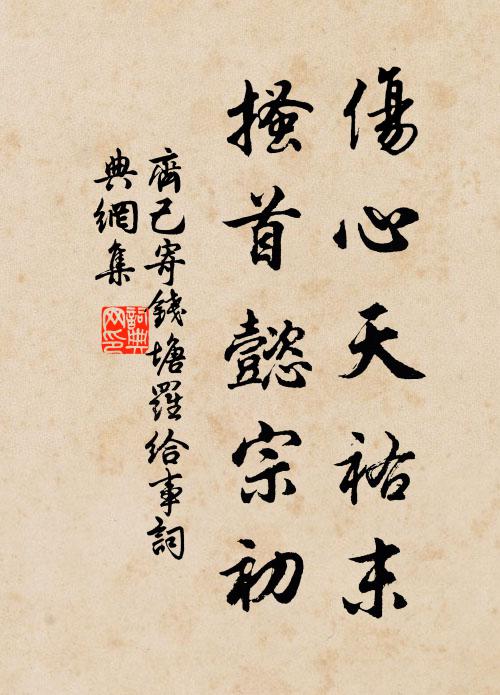 傷心天祐末
搔首懿宗初
齊己寄錢塘羅給事詞
典網集
詞典網印